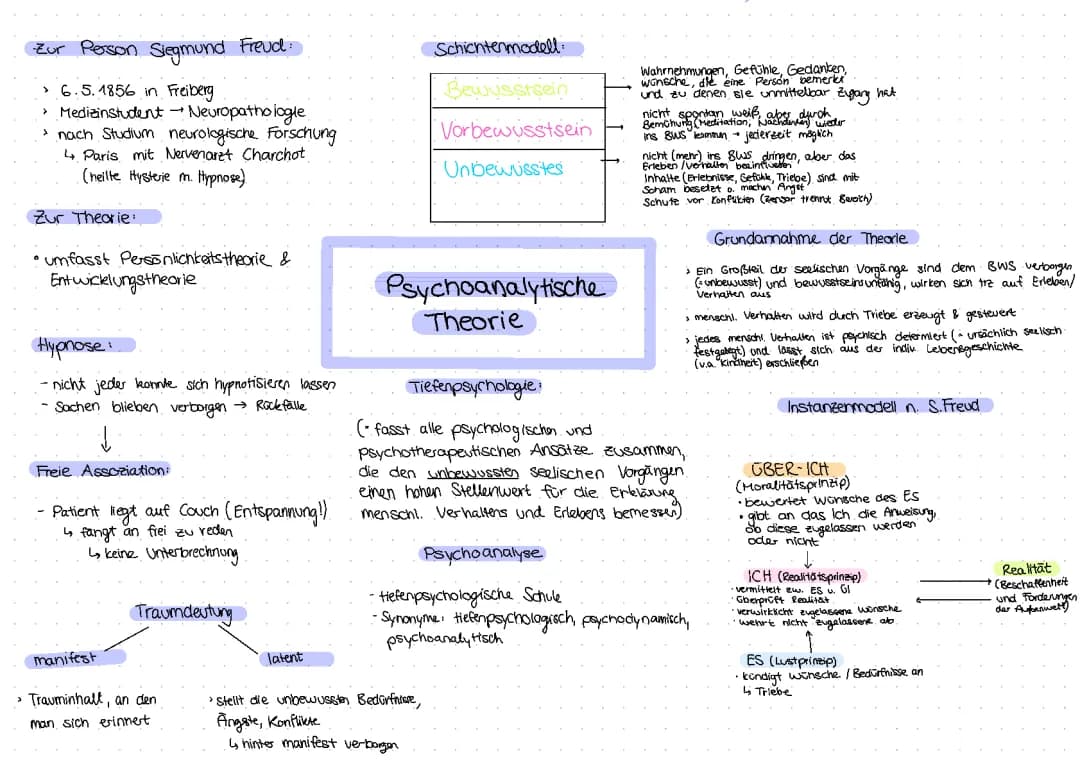 Zur Person Siegmund Freud:
› 6.5.1856 in Freiberg
› Medizinstudent → Neuropathologie
› nach Studium neurologische Forschung
↳ Paris mit Nervenarzt Charchot
(heilte Hysterie m. Hypnose)
Zur Theorie:
• umfasst Persönlichkeitstheorie &
Entwicklungstheorie
Hypnose:
- nicht jeder konnte sich hypnotisieren lassen
- Sachen blieben verborgen → Rückfälle
Freie Assoziation:
- Patient liegt auf Couch (Entspannung!)
↳ fängt an frei zu reden
↳ keine Unterbrechnung
Traumdeutung
manifest
latent
› Trauminhalt, an den
man sich erinnert
› stellt die unbewussten Bedürfnisse,
Ängste, Konflikte
↳ hinter manifest verborgen
Schichtenmodell:
Bewusstsein
Vorbewusstsein
Unbewusstes
Wahrnehmungen, Gefühle, Gedanken,
Wünsche, die eine Person bemerkt
und zu denen sie unmittelbar Zugang hat
nicht spontan weiß, aber durch
Bemühung (Meditation, Nachdenken) wieder
ins BWS kommen → jederzeit möglich
nicht (mehr) ins BWS dringen, aber das
Erleben/Verhalten beeinflussen
Inhalte (Erlebnisse, Gefühle, Triebe) sind mit
Scham besetzt o. machen Angst
Schutz vor Konflikten (Zensor trennt Bereich)
Psychoanalytische
Theorie
Tiefenpsychologie:
(= fasst alle psychologischen und
psychotherapeutischen Ansätze zusammen,
die den unbewussten seelischen Vorgängen
einen hohen Stellenwert für die Erklärung
menschl. Verhaltens und Erlebens bemessen)
Psychoanalyse
- tiefenpsychologische Schule
- Synonyme: tiefenpsychologisch, psychodynamisch,
psychoanalytisch
Grundannahme der Theorie
› Ein Großteil der seelischen Vorgänge sind dem BWS verborgen
(= unbewusst) und bewusstseinsunfähig, wirken sich trz auf Erleben/
Verhalten aus
› menschl. Verhalten wird durch Triebe erzeugt & gesteuert
› jedes menschl. Verhalten ist psychisch determiert (= ursächlich seelisch
festgelegt) und lässt sich aus der indiv. Lebensgeschichte
(v.a. Kindheit) erschließen
Instanzenmodell n. S.Freud
ÜBER-ICH
(Moralitätsprinzip)
• bewertet Wünsche des ES
• gibt an das Ich die Anweisung,
ob diese zugelassen werden
oder nicht
ICH (Realitätsprinzip)
• vermittelt zw. ES u. ÜI
• überprüft Realität
• verwirklicht zugelassene Wünsche
• wehrt nicht zugelassene ab
Realität
(Beschaffenheit
und Forderungen
der Außenwelt)
ES (Lustprinzip)
• kündigt Wünsche / Bedürfnisse an
↳ Triebe